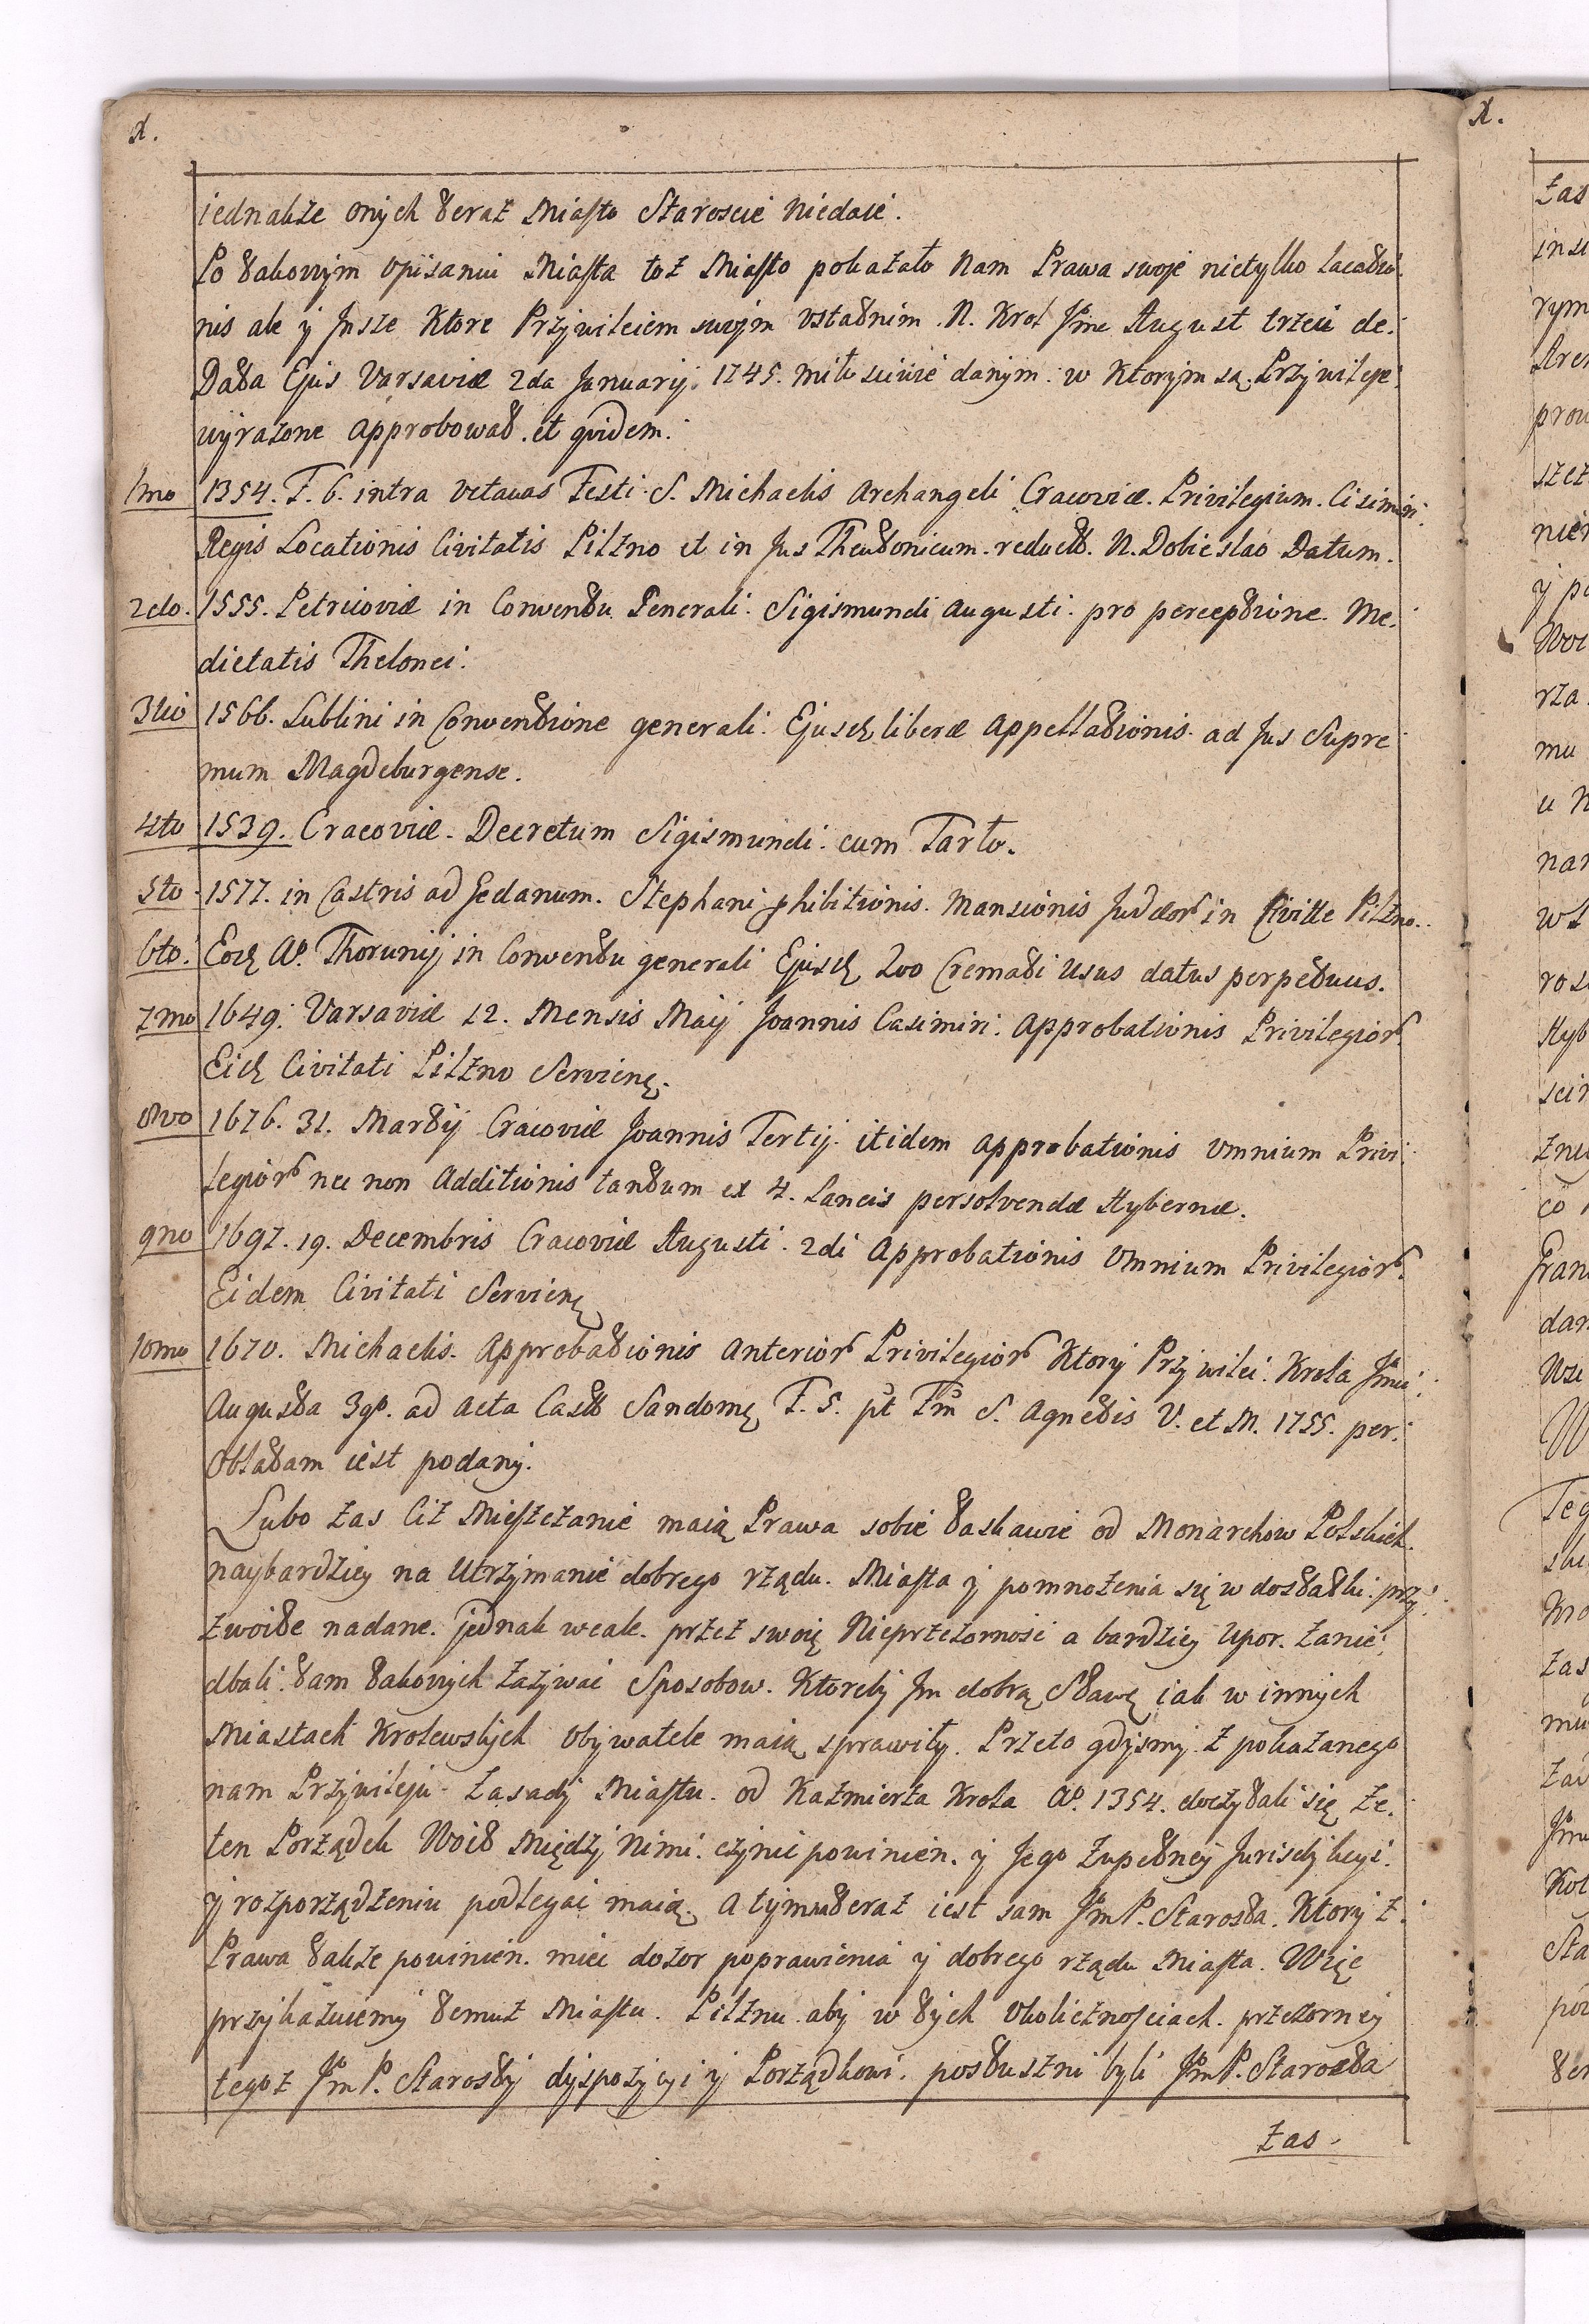 X.
iednakże onych teraz Miasto Staroscie niedaie.
Po takowym opisaniu Miasta toż Miasto pokazało Nam Prawa swoje nietylko Locatio-
nis ale y Insze Ktore Przywileiem swoym ostatnim N. Krol Jmc August trzeci de-
Data Ejus Varsaviæ 2da Januarij 1745. miłosciwie danym. w Ktorym są Przywileje
wyrazone approbował. et qvidem.
1mo 1354. F. 6. intra octavas Festi S. Michaelis Archangeli Cracoviæ. Privilegium. Casimiri
Regis Locationis Civitatis Pilzno et in Jus Theutonicum reduct. N. Dobieslao Datum.
2do. 1555. Petricoviæ in Conventu Generali. Sigismundi Augusti. pro perceptione. Me-
dietatis Thelonei.
3tio 1566. Lublini in Conventione generali. Ejusd. liberæ appellationis. ad Jus Supre
mum Magdeburgense.
4to 1539. Cracoviæ. Decretum Sigismundi. cum Tarło.
5to 1577. in Castris ad Gedanum. Stephani phibitionis. Mansionis Judæor. in Civitte Pilzno.
6to. Eod. Ao. Thorunij in Conventu generali Ejusd. Loo Cremati usus datus perpetuus.
7mo 1649. Varsaviæ 12. Mensis Maij Joannis Casimiri. Approbationis Privilegior.
Eid. Civitati Pilzno Servien.
8vo 1676. 31. Martij Cracoviæ Joannis Tertij. itidem approbationis omnium Privi
legior. nec non Additionis tantum ex 4. Laneis persolvendæ Hybernæ.
9no 1697. 19. Decembris Cracoviæ Augusti. 2di Approbationis omnium Privilegior.
Eidem Civitati Servien.
10mo 1670. Michaelis. Approbationis anterior. Privilegior. Ktory Przywilei. Krola Jmci
Augusta 3go. ad acta Castr. Sandom. F. 5. pt Fm S. Agnetis V. et M. 1755. per
Oblatam iest podany.
Lubo zas Ciż Mieszczanie maią Prawa sobie łaskawie od Monarchow Polskich.
naybardziey na utrzymanie dobrego rządu. Miasta y pomnożenia się w dostatki. przy-
zwoite nadane. jednak wcale. przez swoię Nieprzezornosc a bardziey upor. zanie-
dbali. tam takowych zazywac Sposobow. Ktoreby Im dobrą sławę iak w innych
Miastach Krolewskych Obywatele maią sprawiły. Przeto gdysmy z pokazanego
nam Przywileju zasady Miastu. od Kazmierza Krola Ao. 1354. doczytali się że
ten Porządek Woit między Nimi. czynic powinien. y Jego zupełney Jurisdykcyi.
y rozporządzeniu podlegac maią. A tym teraz iest sam Jm P. Starosta. Ktory z
Prawa takze powinien. miec dozor poprawienia y dobrego rządu Miasta. Więc
przykazuiemy temuz Miastu. Pilznu aby w tych okolicznosciach. przezorney
tegoz Jm P. Starosty dyspozycyi y Porządkowi. posłuszni byli Jm P. Starosta
zas